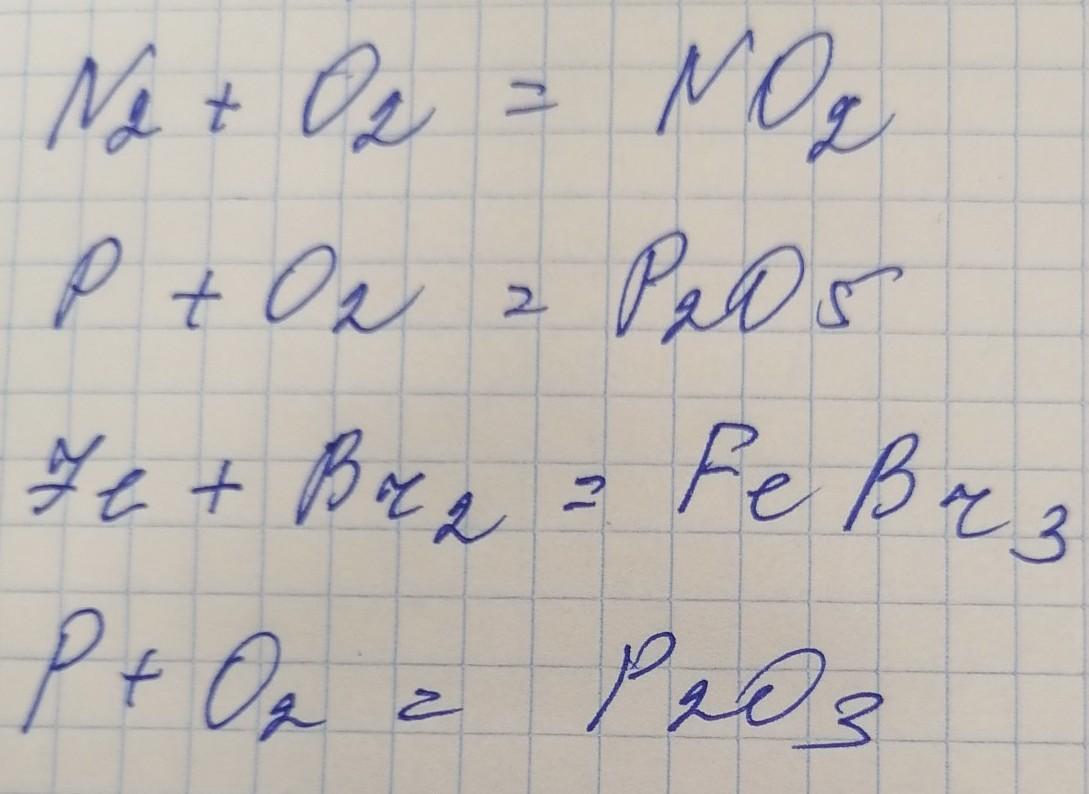 N₂ + O₂ = NO₂
P + O₂ = P₂O₅
Fe + Br₂ = FeBr₃
P + O₂ = P₂O₃